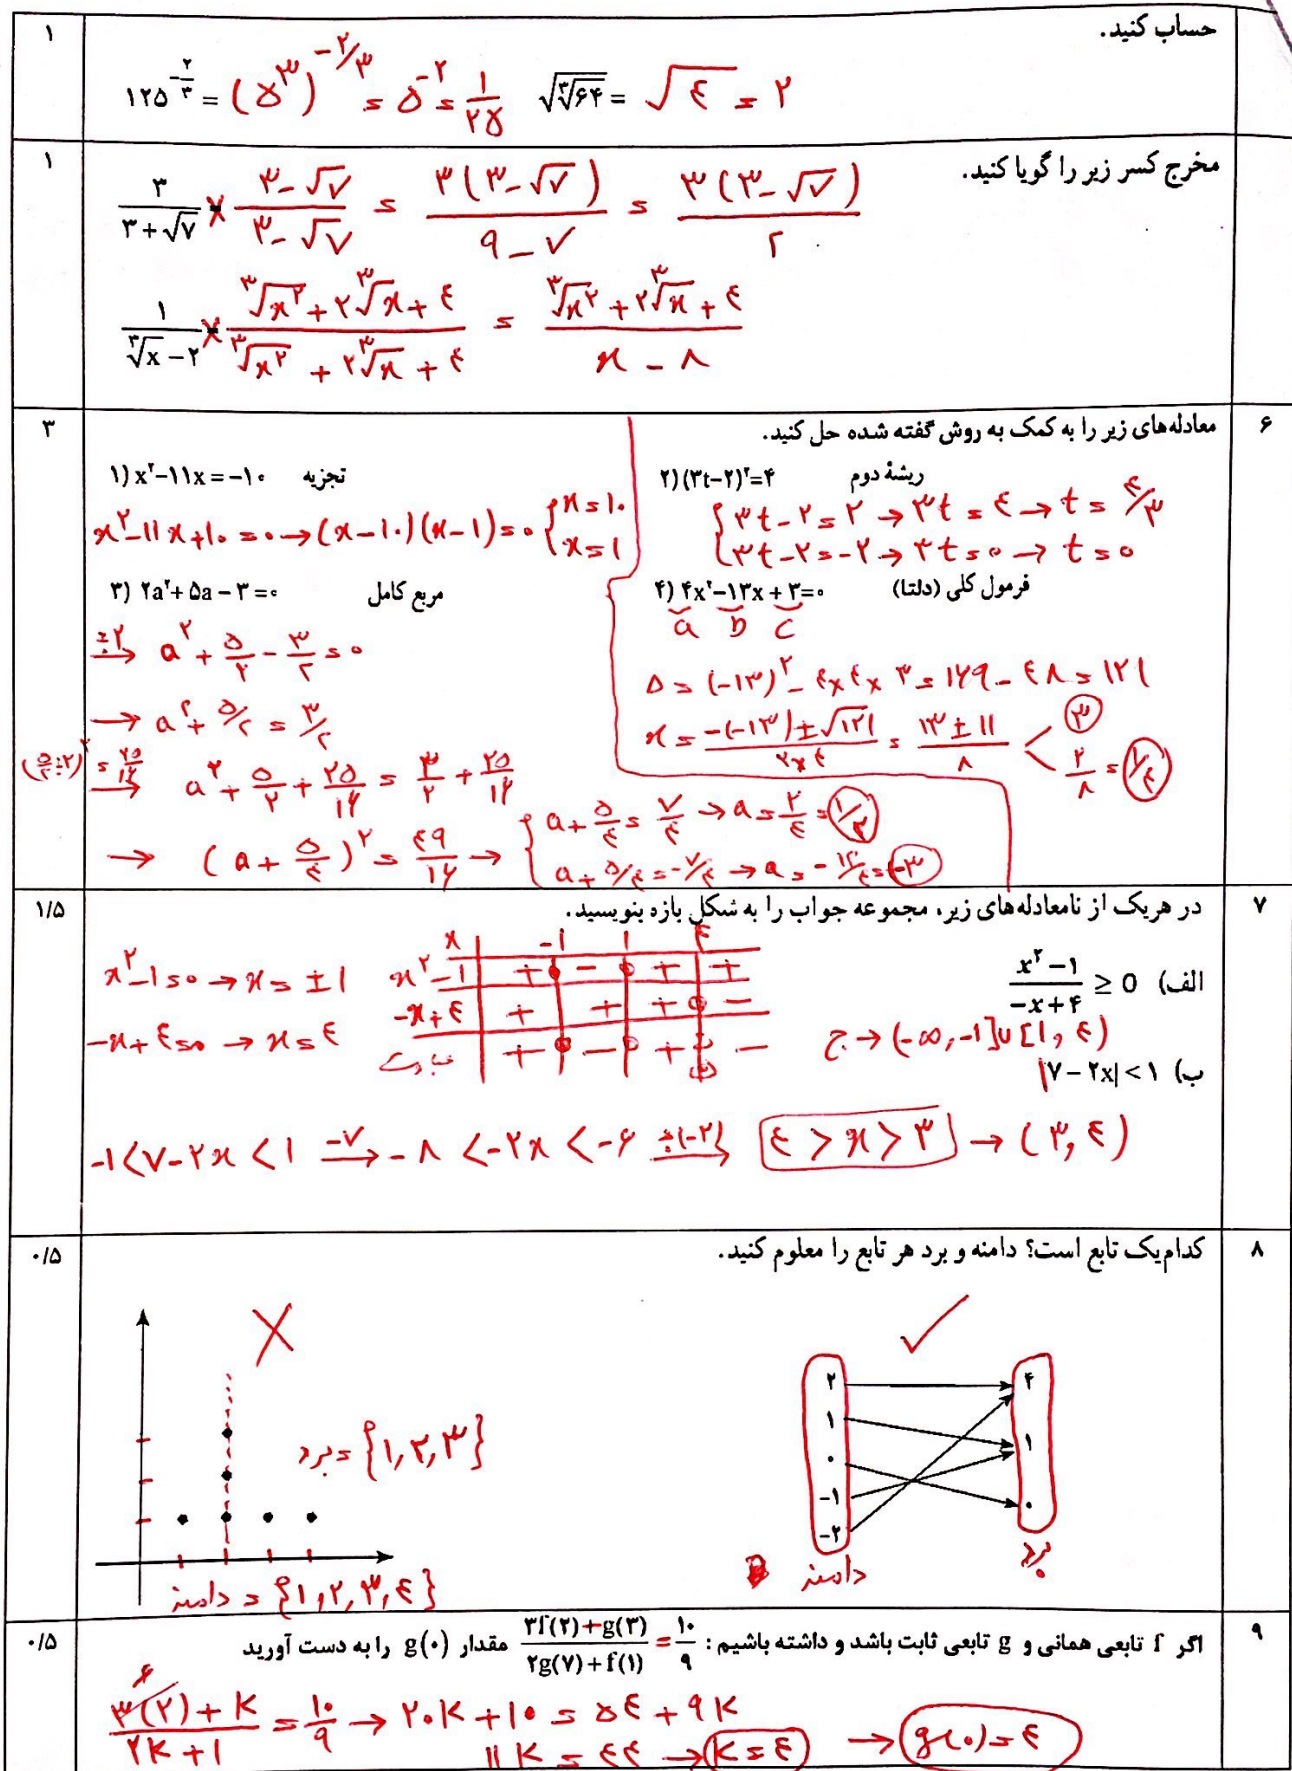 ۱
حساب کنید.
۱۲۵^(-۲/۳) = (۵^۳)^(-۲/۳) = ۵^-۲ = ۱/۲۵   √∛۶۴ = √۴ = ۲
۱
مخرج کسر زیر را گویا کنید.
۳/(۳+√۷) × (۳-√۷)/(۳-√۷) = ۳(۳-√۷)/(۹-۷) = ۳(۳-√۷)/۲
۱/(∛x -۲) × (∛x^۲ + ۲∛x + ۴)/(∛x^۲ + ۲∛x + ۴) = (∛x^۲ + ۲∛x + ۴)/(x - ۸)
۳
۶
معادله‌های زیر را به کمک به روش گفته شده حل کنید.
۱) x^۲-۱۱x = -۱۰ تجزیه
x^۲-۱۱x+۱۰=۰ → (x-۱۰)(x-۱)=۰ { x=۱۰
x=۱
۲) (۳t-۲)^۲=۴ ریشهٔ دوم
{ ۳t-۲=۲ → ۳t=۴ → t=۴/۳
۳t-۲=-۲ → ۳t=۰ → t=۰
۳) ۲a^۲+۵a-۳=۰ مربع کامل
÷۲ → a^۲ + ۵/۲ - ۳/۲ = ۰
→ a^۲ + ۵/۲ = ۳/۲
(۵/۲÷۲)^۲ = ۲۵/۱۶ → a^۲ + ۵/۲ + ۲۵/۱۶ = ۳/۲ + ۲۵/۱۶
→ (a + ۵/۴)^۲ = ۴۹/۱۶ → { a+۵/۴=۷/۴ → a=۲/۴=۱/۲
a+۵/۴=-۷/۴ → a=-۱۲/۴=-۳
۴) ۴x^۲-۱۳x+۳=۰ فرمول کلی (دلتا)
a b c
Δ = (-۱۳)^۲ - ۴×۴×۳ = ۱۶۹-۴۸ = ۱۲۱
x = (-(-۱۳)±√۱۲۱)/(۲×۴) = (۱۳±۱۱)/۸ < ۳
۲/۸ = ۱/۴
۱/۵
۷
در هریک از نامعادله‌های زیر، مجموعه جواب را به شکل بازه بنویسید.
الف) (x^۲-۱)/(-x+۴) ≥ 0
x^۲-۱=۰ → x=±۱
-x+۴=۰ → x=۴
x -۱ ۱ ۴
x^۲-۱ + - + +
-x+۴ + + + -
عبارت + - + ت ن -
ج → (-∞,-۱]∪[۱,۴)
ب) |۷-۲x| < ۱
-۱<۷-۲x<۱ -۷ → -۸<-۲x<-۶ ÷(-۲) → ۴>x>۳ → (۳,۴)
۰/۵
۸
کدام‌یک تابع است؟ دامنه و برد هر تابع را معلوم کنید.
۲
۱
۰
-۱
-۲
۴
۱
۰
دامنه
برد
برد = {۱,۲,۳}
دامنه = {۱,۲,۳,۴}
۰/۵
۹
اگر f تابعی همانی و g تابعی ثابت باشد و داشته باشیم: (۳f(۲)+g(۳))/(۲g(۷)+f(۱)) = ۱۰/۹ مقدار g(۰) را به دست آورید
۶
(۳(۲)+K)/(۲K+۱) = ۱۰/۹ → ۲۰K+۱۰=۵۴+۹K
۱۱K=۴۴ → K=۴ → g(۰)=۴